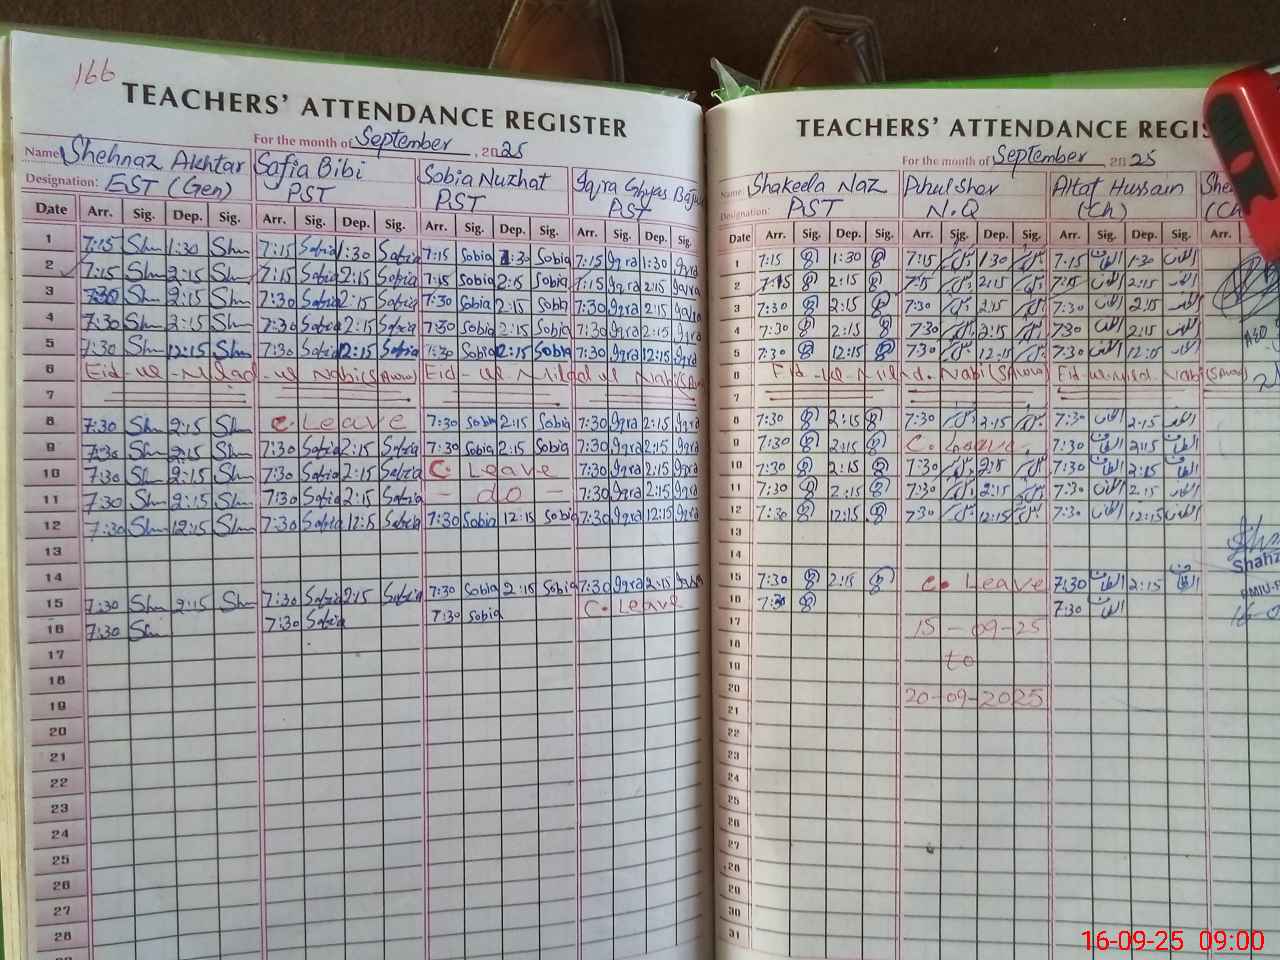 166
TEACHERS' ATTENDANCE REGISTER
For the month of September, 2025
Name Shehnaz Akhtar Safia Bibi Sobia Nuzhat Iqra
Designation: EST (Gen) PST PST PST
Date Arr. Sig. Dep. Sig. Arr. Sig. Dep. Sig. Arr. Sig. Dep. Sig. Arr. Sig. Dep. Sig.
1 7:15 Shn 1:30 Shn 7:15 Safia 1:30 Safia 7:15 Sobia 1:30 Sobia 7:15 Iqra 1:30 Iqra
2 7:15 Shn 2:15 Shn 7:15 Safia 2:15 Safia 7:15 Sobia 2:15 Sobia 7:15 Iqra 2:15 Iqra
3 7:30 Shn 2:15 Shn 7:30 Safia 2:15 Safia 7:30 Sobia 2:15 Sobia 7:30 Iqra 2:15 Iqra
4 7:30 Shn 2:15 Shn 7:30 Safia 2:15 Safia 7:30 Sobia 2:15 Sobia 7:30 Iqra 2:15 Iqra
5 7:30 Shn 12:15 Shn 7:30 Safia 12:15 Safia 7:30 Sobia 12:15 Sobia 7:30 Iqra 12:15 Iqra
6 Eid-ul-Milad-ul Nabi (SAWW) Eid-ul Milad ul Nabi (SAWW)
7
8 7:30 Shn 2:15 Shn C. Leave 7:30 Sobia 2:15 Sobia 7:30 Iqra 2:15 Iqra
9 7:30 Shn 2:15 Shn 7:30 Safia 2:15 Safia 7:30 Sobia 2:15 Sobia 7:30 Iqra 2:15 Iqra
10 7:30 Shn 2:15 Shn 7:30 Safia 2:15 Safia C. Leave 7:30 Iqra 2:15 Iqra
11 7:30 Shn 2:15 Shn 7:30 Safia 2:15 Safia - do - 7:30 Iqra 2:15 Iqra
12 7:30 Shn 12:15 Shn 7:30 Safia 12:15 Safia 7:30 Sobia 12:15 Sobia 7:30 Iqra 12:15 Iqra
13
14
15 7:30 Shn 2:15 Shn 7:30 Safia 2:15 Safia 7:30 Sobia 2:15 Sobia 7:30 Iqra 2:15 Iqra
16 7:30 Shn 7:30 Safia 7:30 Sobia C. Leave
17
18
19
20
21
22
23
24
25
26
27
28
TEACHERS' ATTENDANCE REGIS
For the month of September 2025
Name Shakeela Naz Altaf Hussain She
Designation: PST N.Q (Ch) (Ch
Date Arr. Sig. Dep. Sig. Arr. Sig. Dep. Sig. Arr. Sig. Dep. Sig. Arr.
1 7:15 1:30 7:15 1:30 7:15 1:30
2 7:15 2:15 7:15 2:15 7:15 2:15
3 7:30 2:15 7:30 2:15 7:30 2:15
4 7:30 2:15 7:30 2:15 7:30 2:15
5 7:30 12:15 7:30 12:15 7:30 12:15
6 Eid-ul-Milad. Nabi (SAWW) Eid-ul-Milad Nabi (SAWW)
7
8 7:30 2:15 7:30 2:15 7:30 2:15
9 7:30 2:15 C. Leave 7:30 2:15
10 7:30 2:15 7:30 2:15 7:30 2:15
11 7:30 2:15 7:30 2:15 7:30 2:15
12 7:30 12:15 7:30 12:15 7:30 12:15
13
14
15 7:30 2:15 C. Leave 7:30 2:15
16 7:30 7:30
17 15-09-25
18
19 to
20 20-09-2025
21
22
23
24
25
26
27
28
29
30
31
16-09-25 09:00